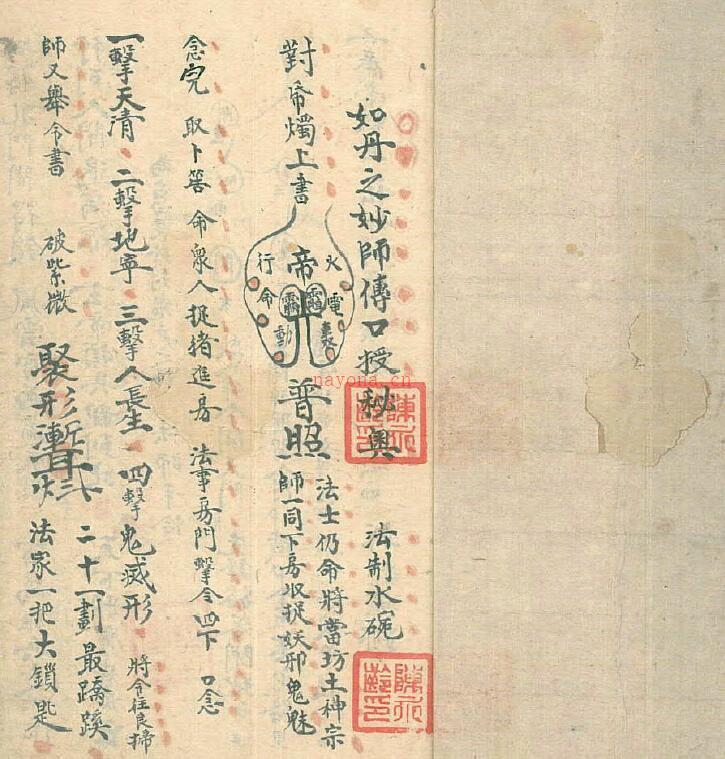 如丹之妙師傳口授秘奧 法制水碗
對帝燭上書 帝 火電 行命動 普照 法士仍命將當坊土神宗
師一同下房收捉妖邪鬼魅
念完 取卜筶 命眾人捉猪進房 法事房門擊令四下 口念
一擊天清 二擊地寧 三擊人長生 四擊鬼滅形 將令往艮掃
師又舉令書 破紫微 聚形 二十一劃最蹺蹊
法家一把大鎖匙
陳 齡印
陳 齡印
nayona.cn